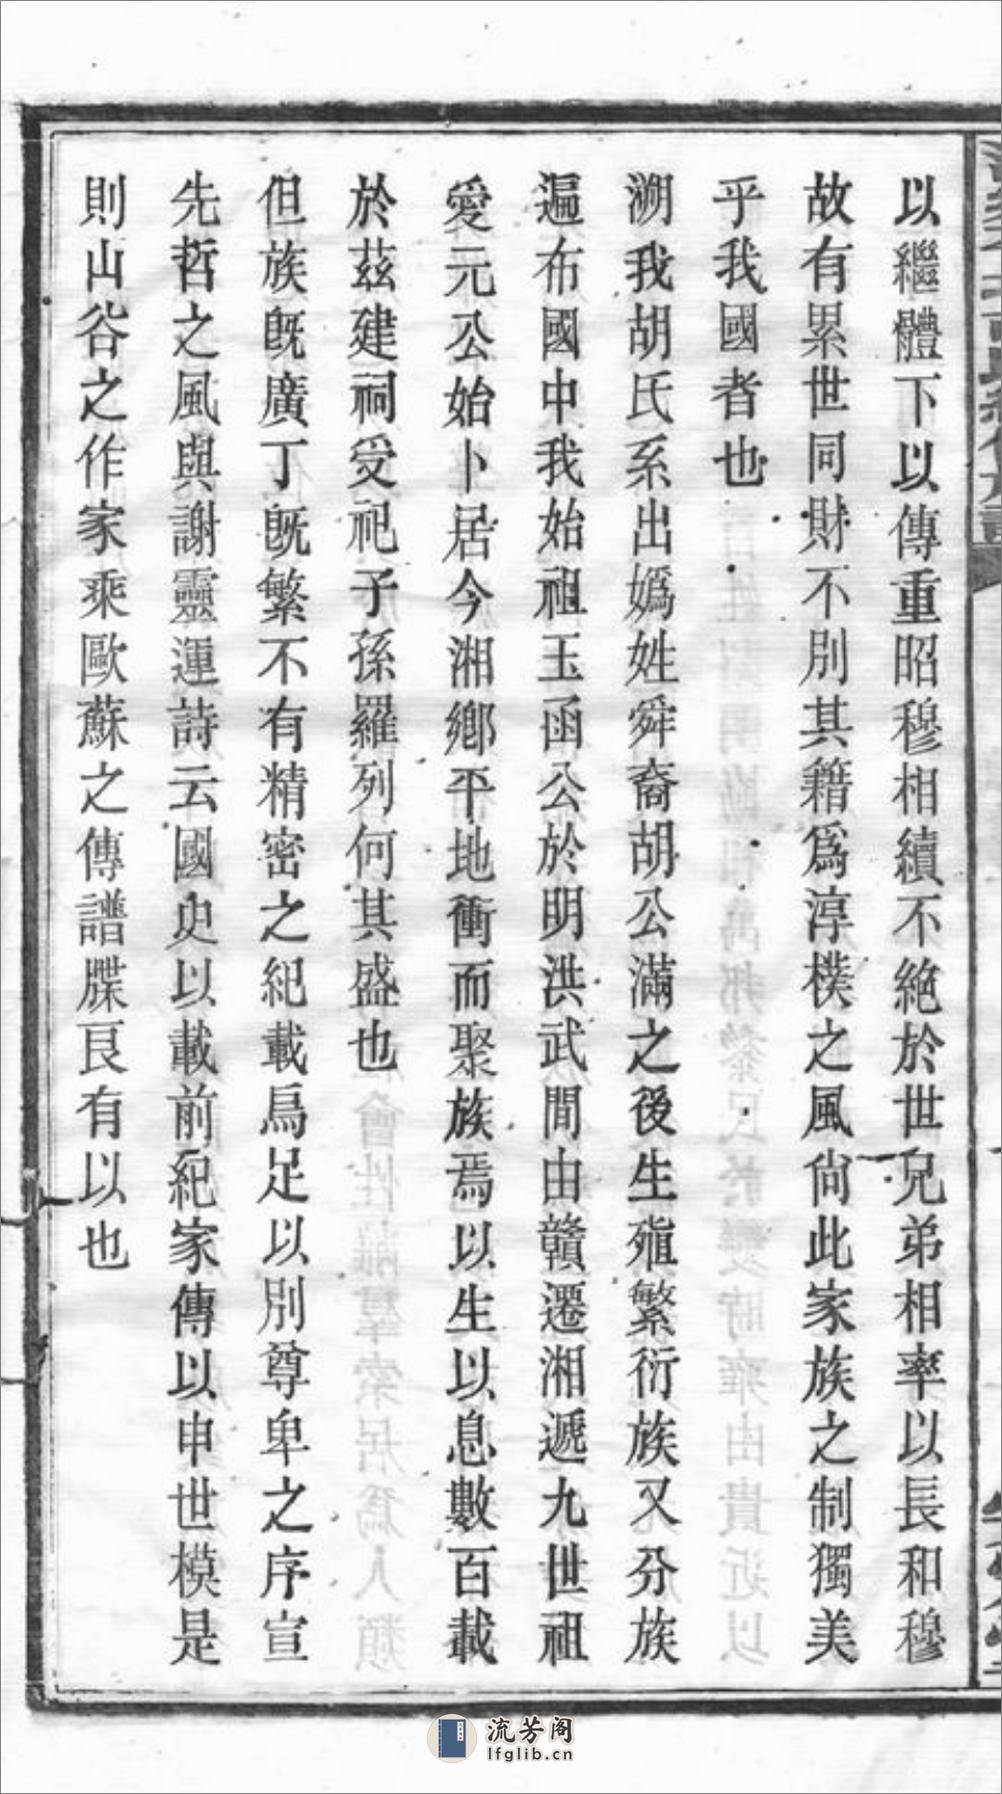 以繼體下以傳重昭穆相續不絶於世兄弟相率以長和穆
故有累世同財不別其籍爲淳樸之風尙此家族之制獨美
乎我國者也
溯我胡氏系出嬀姓舜裔胡公滿之後生殖繁衍族又分族
遍布國中我始祖玉函公於明洪武間由贛遷湘遞九世祖
愛元公始卜居今湘鄉平地衝而聚族焉以生以息數百載
於茲建祠受祀子孫羅列何其盛也
但族旣廣丁旣繁不有精密之紀載烏足以別尊卑之序宣
先哲之風與謝靈運詩云國史以載前紀家傳以申世模是
則山谷之作家乘歐蘇之傳譜牒艮有以也
流芳阁
lfglib.cn